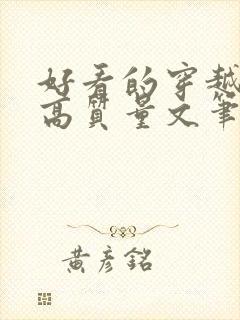 好看的穿越
高质量文笔
黄彦铭